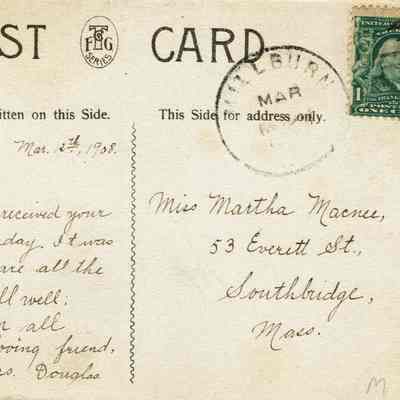 ST CARD
TFG
SERIES
itten on this Side.
This Side for address only.
MILLBURN
MAR
1
ONE C
Mar. 12th, 1908.
received your
day. It was
are all the
ll well;
n all
oving friend,
rs. Douglas
Miss Martha Macnee,
53 Everett St.,
Southbridge,
Mass.
M